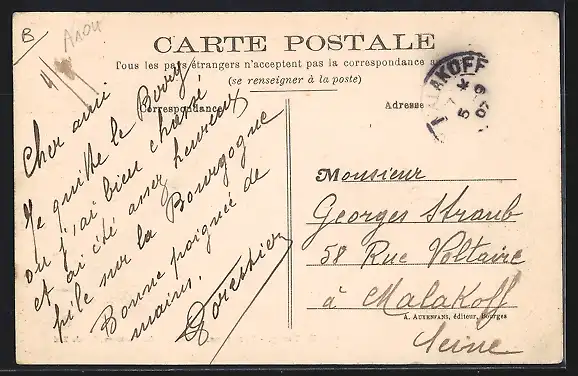 B
CARTE POSTALE
Tous les pays étrangers n'acceptent pas la correspondance a
(se renseigner à la poste)
Correspondance
Adresse
MALAKOFF
7 * 9
5 07
Cher ami
Je quitte le Berry
où j'ai bien chassé
et ai été assez heureux
file sur la Bourgogne
Bonne poignée de
mains.
Monsieur
Georges Straub
58 Rue Voltaire
à Malakoff
A. AUXENFANS, éditeur, Bourges
Seine